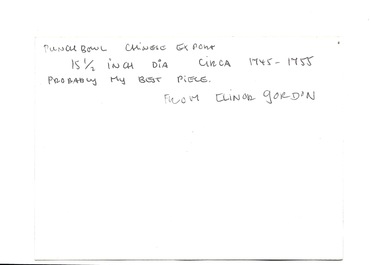 PUNCH BOWL CHINESE EXPORT
15 1/2 INCH DIA CIRCA 1745-1755
PROBABLY MY BEST PIECE.
FROM ELINOR GORDON